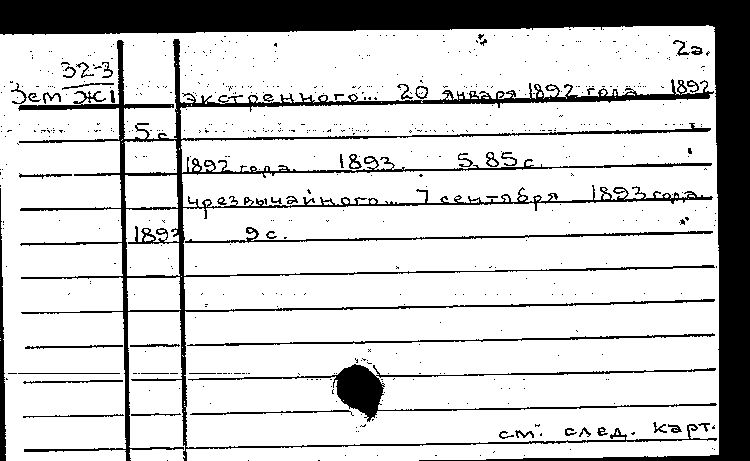 2а.
32-3
Зем ЖI экстренного... 20 января 1892 года 1892
5 с.
1892 года. 1893. 5, 85 с.
чрезвычайного... 7 сентября 1893 года.
1893. 9 с.
см. след. карт.